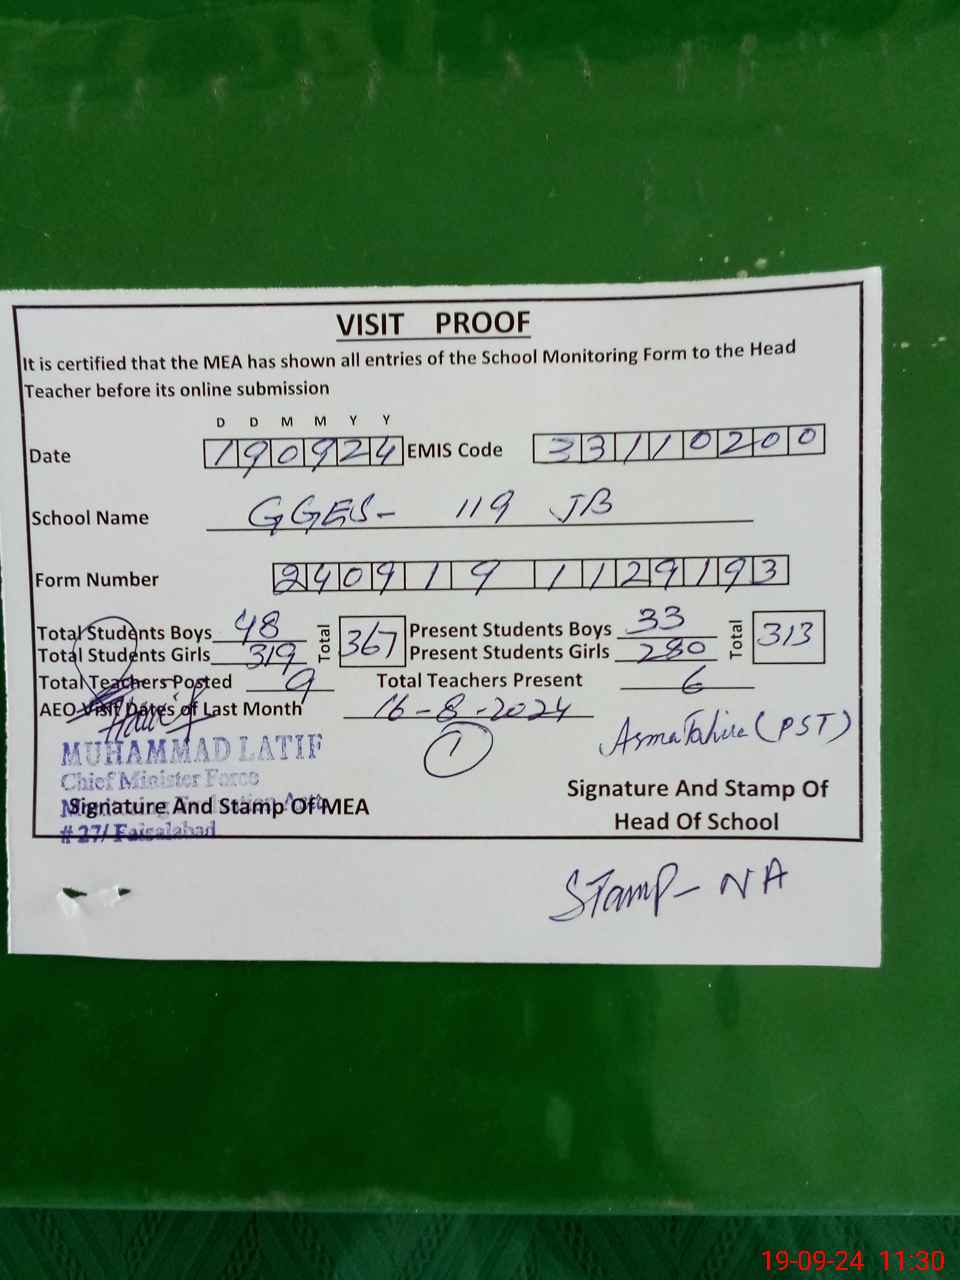 VISIT PROOF
It is certified that the MEA has shown all entries of the School Monitoring Form to the Head
Teacher before its online submission
D D M M Y Y
Date 190924 EMIS Code 33110200
School Name GGES- 119 JB
Form Number 2409191129193
Total Students Boys 48 Total 367 Present Students Boys 33 Total 313
Total Students Girls 319 Present Students Girls 280
Total Teachers Posted 9 Total Teachers Present 6
AEO Visit Dates of Last Month 16-8-2024
1
Asma Tahira (PST)
MUHAMMAD LATIF
Chief Minister Force
Signature And Stamp Of MEA
# 27/ Faisalabad
Signature And Stamp Of
Head Of School
Stamp- NA
19-09-24 11:30